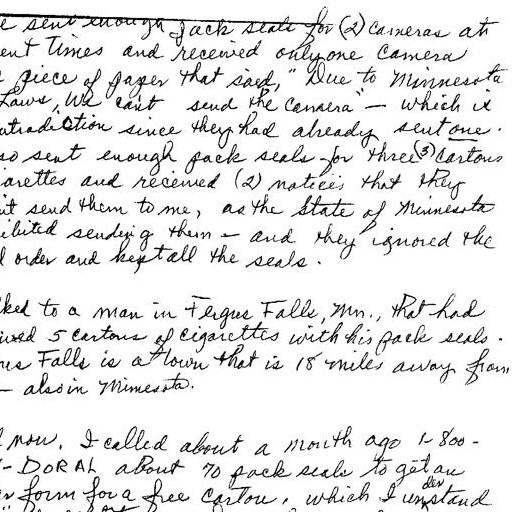 e sent enough pack seals for (2) cameras at
ent times and received only one camera
piece of paper that said, "Due to Minnesota
Laws, We can't send the Camera" — which is
ntradiction since they had already sent one.
so sent enough pack seals for three (3) cartons
arettes and received (2) notices that they
't send them to me, as the State of Minnesota
ibited sending them — and they ignored the
l order and kept all the seals.
lked to a man in Fergus Falls, Mn., that had
ived 5 cartons of cigarettes with his pack seals.
us Falls is a town that is 18 miles away from
— also in Minnesota.
d now, I called about a month ago 1-800-
-DORAL about 70 pack seals to get an
r form for a free carton, which I understand